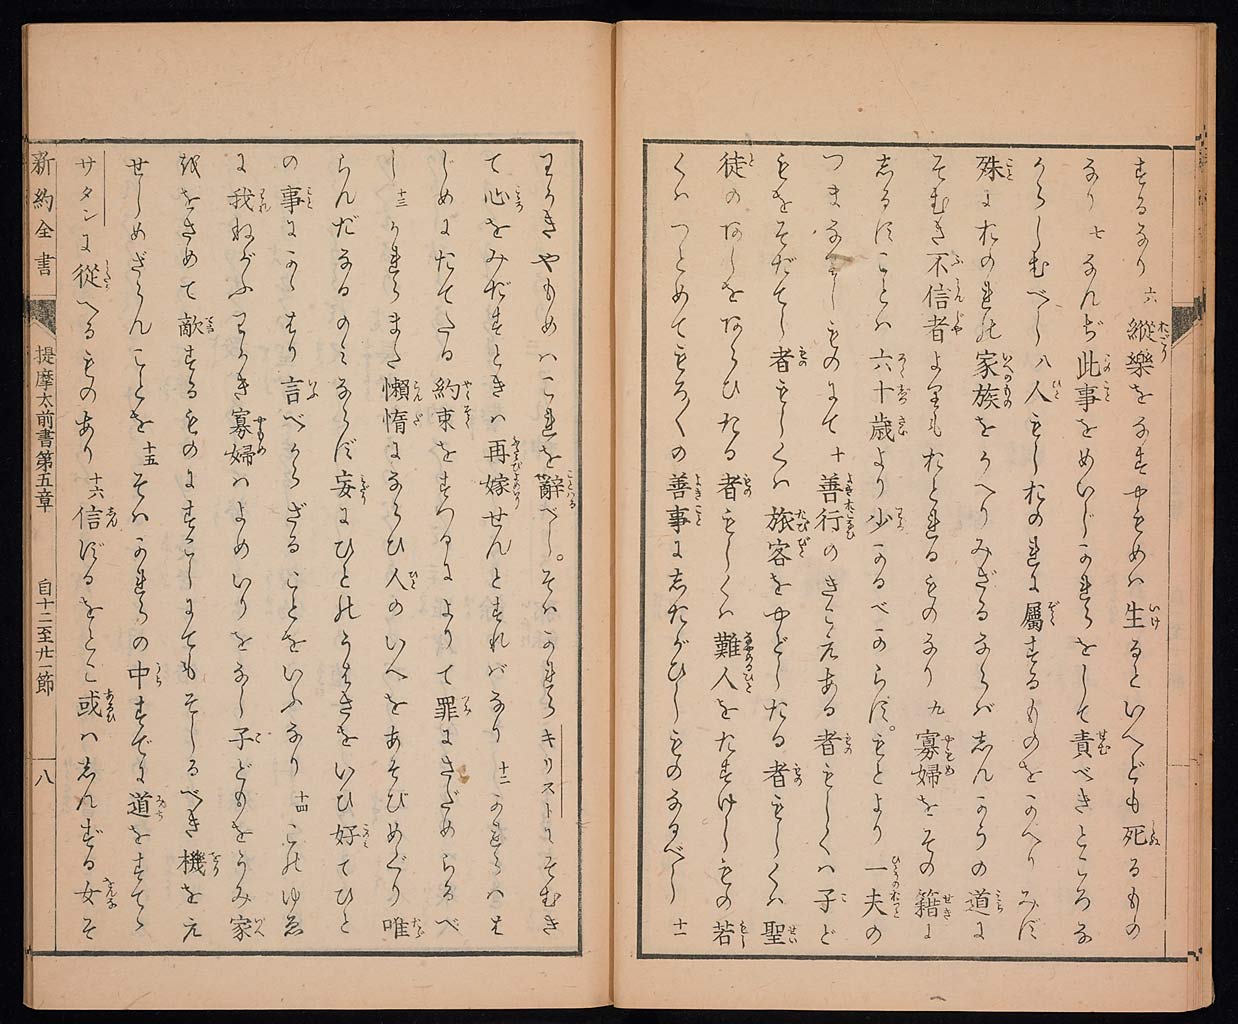 するなり 六 縦樂をなすやもめは生るといへども死るもの
なり 七 なんぢ此事をめいじかれらをして責べきところな
からしむべし 八 人もしおのれに屬するものをかへりみず
殊におのれの家族をかへりみざるならばしんかうの道に
そむき不信者よりもおとれるものなり 九 寡婦をその籍に
しるすことは六十歳より少かるべからず。もとより一夫の
つまなりしものにて 十 善行のきこえある者もしくは子ど
もをそだてし者もしくは旅客をやどしたる者もしくは聖
徒のあしをあらひたる者もしくは難人をたすけしもの若
くはつとめてもろ〳〵の善事にしたがひしものなるべし 十一
わかきやもめはこれを辭べし。そはかれらキリストにそむき
て心をみだすときは再嫁せんとすればなり 十二 かれらはは
じめにたてたる約束をすつるによりて罪にさだめらるべ
し 十三 かれらまた懶惰にならひ人のいへをあそびめぐり唯
らんだなるのみならず妄にひとのうはさをいひ好てひと
の事にかゝはり言べからざることをいふなり 十四 このゆゑ
に我ねがふわかき寡婦はよめいりをなし子どもをうみ家
をさめて敵するものにすこしにてもそしるべき機をえ
せしめざらんことを 十五 そはかれらの中すでに道をすてゝ
サタンに從へるものあり 十六 信ずるをとこ或はしんずる女そ
新約全書 提摩太前書第五章 自十二至廿一節 八